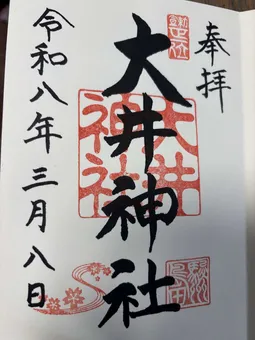 奉拝
大井神社
大井神社
令和八年三月八日